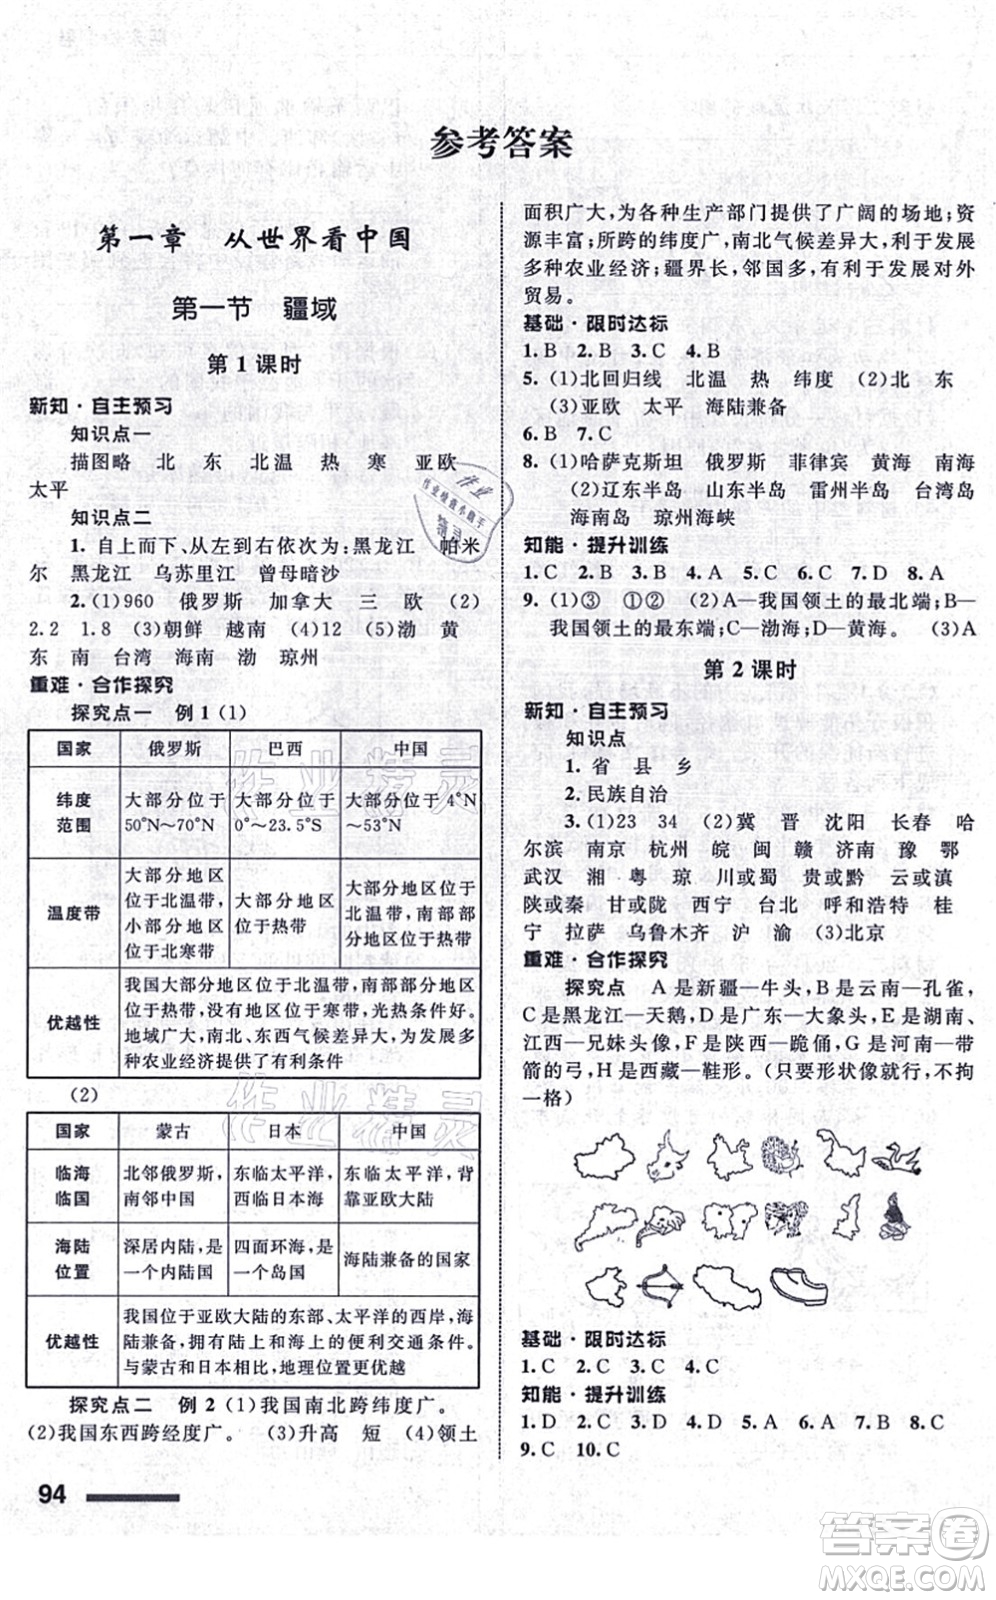 参考答案
第一章　从世界看中国
第一节　疆域
第 1 课时
新知·自主预习
知识点一
描图略　北　东　北温　热　寒　亚欧
太平
知识点二
1. 自上而下、从左到右依次为:黑龙江　帕米
尔　黑龙江　乌苏里江　曾母暗沙
2. (1)960　俄罗斯　加拿大　三　欧　(2)
2.2　1.8　(3)朝鲜　越南　(4)12　(5)渤　黄
东　南　台湾　海南　渤　琼州
重难·合作探究
探究点一　例 1 (1)
国家　俄罗斯　巴西　中国
纬度范围　大部分位于50°N~70°N　大部分位于0°~23.5°S　大部分位于 4°N~53°N
温度带　大部分地区位于北温带,小部分地区位于北寒带　大部分地区位于热带　大部分地区位于北温带,南部部分地区位于热带
优越性　我国大部分地区位于北温带,南部部分地区
位于热带,没有地区位于寒带,光热条件好。
地域广大,南北、东西气候差异大,为发展多
种农业经济提供了有利条件
(2)
国家　蒙古　日本　中国
临海临国　北邻俄罗斯,南邻中国　东临太平洋,西临日本海　东临太平洋,背靠亚欧大陆
海陆位置　深居内陆,是一个内陆国　四面环海,是一个岛国　海陆兼备的国家
优越性　我国位于亚欧大陆的东部、太平洋的西岸,海
陆兼备,拥有陆上和海上的便利交通条件。
与蒙古和日本相比,地理位置更优越
探究点二　例 2 (1)我国南北跨纬度广。
(2)我国东西跨经度广。　(3)升高　短　(4)领土
94
面积广大,为各种生产部门提供了广阔的场地;资
源丰富;所跨的纬度广,南北气候差异大,利于发展
多种农业经济;疆界长,邻国多,有利于发展对外
贸易。
基础·限时达标
1. B　2. B　3. C　4. B
5. (1)北回归线　北温　热　纬度　(2)北　东
(3)亚欧　太平　海陆兼备
6. B　7. C
8. (1)哈萨克斯坦　俄罗斯　菲律宾　黄海　南海
(2)辽东半岛　山东半岛　雷州半岛　台湾岛
海南岛　琼州海峡
知能·提升训练
1. C　2. B　3. B　4. A　5. C　6. C　7. D　8. A
9. (1)③　①②　(2)A—我国领土的最北端;B—
我国领土的最东端;C—渤海;D—黄海。　(3)A
第 2 课时
新知·自主预习
知识点
1. 省　县　乡
2. 民族自治
3. (1)23　34　(2)冀　晋　沈阳　长春　哈
尔滨　南京　杭州　皖　闽　赣　济南　豫　鄂
武汉　湘　粤　琼　川或蜀　贵或黔　云或滇
陕或秦　甘或陇　西宁　台北　呼和浩特　桂
宁　拉萨　乌鲁木齐　沪　渝　(3)北京
重难·合作探究
探究点　A 是新疆—牛头,B 是云南—孔雀,
C是黑龙江—天鹅,D 是广东—大象头,E 是湖南、
江西—兄妹头像,F 是陕西—跪俑,G 是河南—带
箭的弓,H 是西藏—鞋形。(只要形状像就行,不拘
一格)
基础·限时达标
1. C　2. C　3. C　4. C
知能·提升训练
1. D　2. C　3. D　4. D　5. A　6. A　7. B　8. C
9. C　10. C
作业精灵
作业精灵
答案卷
MXQE.COM